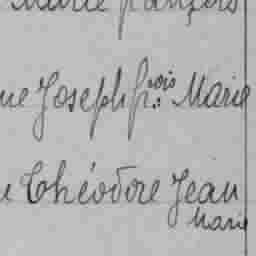 Marie françois
ue Joseph fr.ois Marie
Théodore Jean
Marie